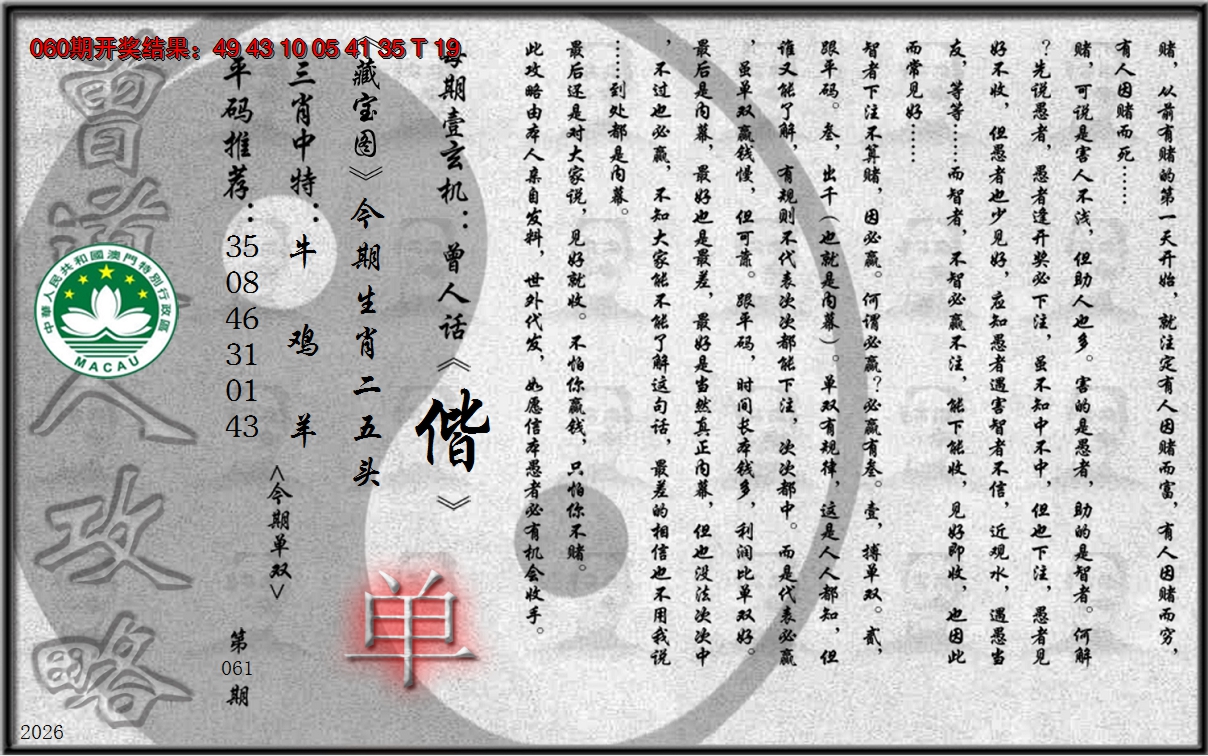 060期开奖结果：49 43 10 05 41 35 T 19
赌，从前有赌的第一天开始，就注定有人因赌而富，有人因赌而穷，
有人因赌而死……
赌，可说是害人不浅，但助人也多。害的是愚者，助的是智者。何解
？先说愚者，愚者逢开奖必下注，虽不知中不中，但也下注，愚者见
好不收，但愚者也少见好，应知愚者遇害智者不信，近观水，遇愚当
友，等等……而智者，不智必赢不注，能下能收，见好即收，也因此
而常见好……
智者下注不算赌，因必赢。何谓必赢？必赢有叁。壹，搏单双。贰，
跟平码。叁，出千（也就是内幕）。单双有规律，这是人人都知，但
谁又能了解，有规则不代表次次都能下注，次次都中。而是代表必赢
，虽单双赢钱慢，但可靠。跟平码，时间长本钱多，利润比单双好。
最后是内幕，最好也是最差，最好是当然真正内幕，但也没法次次中
，不过也必赢，不知大家能不能了解这句话，最差的相信也不用我说
……到处都是内幕。
最后还是对大家说，见好就收。不怕你赢钱，只怕你不赌。
此攻略由本人亲自发料，世外代发，如愿信本愚者必有机会收手。
每期壹玄机：曾人话《偕》
《藏宝图》今期生肖二五头
单
三肖中特：牛 鸡 羊
<今期单双>
平码推荐：35 08 46 31 01 43
第061期
曾道人攻略
中華人民共和國澳門特別行政區
MACAU
2026